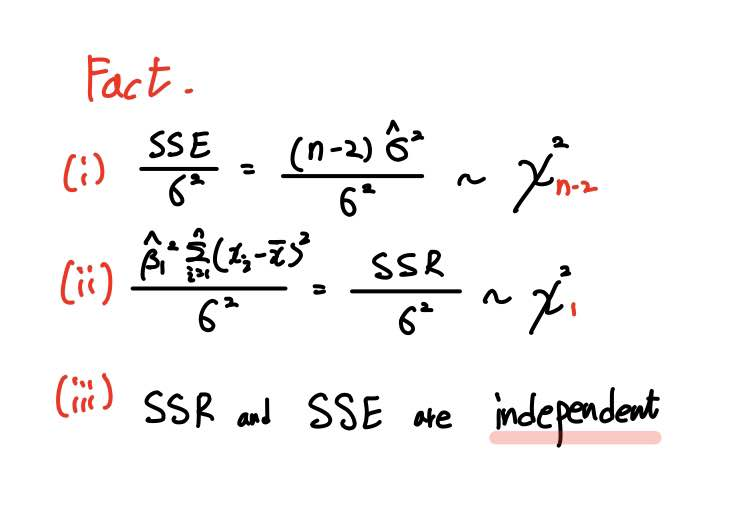 Fact.
(i) SSE/σ² = (n-2) σ̂²/σ² ~ χ²ₙ₋₂
(ii) β̂₁² Σᵢ₌₁ⁿ (xᵢ - x̄)²/σ² = SSR/σ² ~ χ²₁
(iii) SSR and SSE are independent